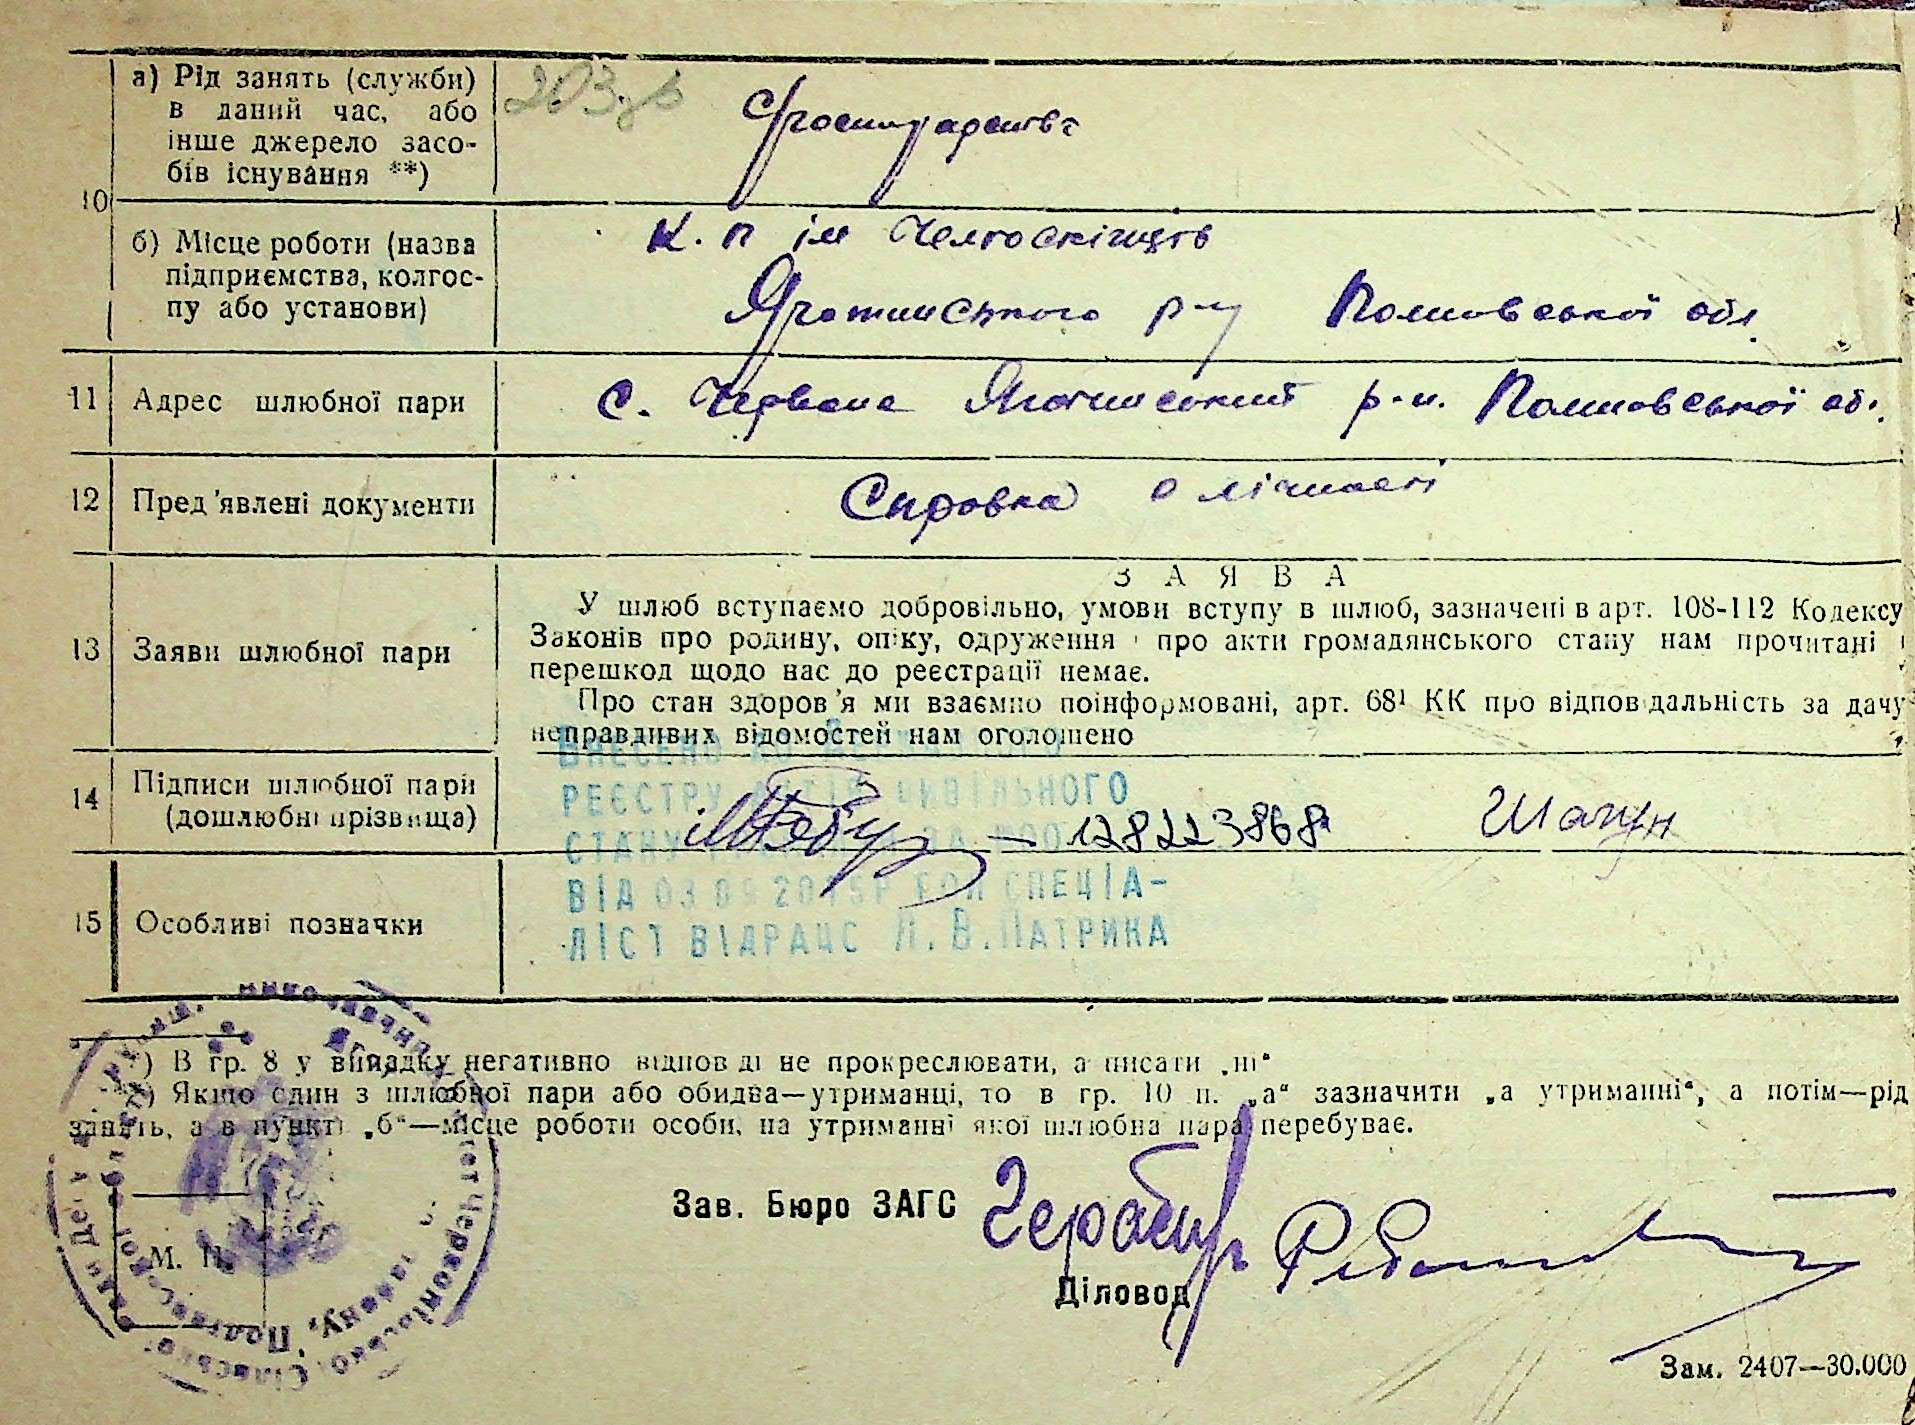 10
а) Рід занять (служби)
в даний час, або
інше джерело засо-
бів існування **)
б) Місце роботи (назва
підприємства, колгос-
пу або установи)
К. п ім Челюскінців
Яготинського р-у Полтовської обл.
11 Адрес шлюбної пари
с. Червоне Яготинський р-н. Полтовської об.
12 Пред'явлені документи
Справка о лічності
З А Я В А
13 Заяви шлюбної пари
У шлюб вступаємо добровільно, умови вступу в шлюб, зазначені в арт. 108-112 Кодексу
Законів про родину, опіку, одруження і про акти громадянського стану нам прочитані і
перешкод щодо нас до реєстрації немає.
Про стан здоров'я ми взаємно поінформовані, арт. 68¹ КК про відповідальність за дачу
неправдивих відомостей нам оголошено
14 Підписи шлюбної пари
(дошлюбні прізвища)
— 128223868 Шапун
ВНЕСЕНО ДО
РЕЄСТРУ АКТІВ ЦИВІЛЬНОГО
СТАНУ
ВІД 03 09 2015Р СПЕЦІА-
ЛІСТ ВІДРАЦС Л.В.ПАТРИКА
15 Особливі позначки
*) В гр. 8 у випадку негативно відповіді не прокреслювати, а писати „ні“
**) Якщо один з шлюбної пари або обидва—утриманці, то в гр. 10 п. „а“ зазначити „а утриманні“, а потім—рід
занять, а в пункті „б“—місце роботи особи, на утриманні якої шлюбна пара перебуває.
Зав. Бюро ЗАГС
Діловод
М. П.
Зам. 2407—30.000